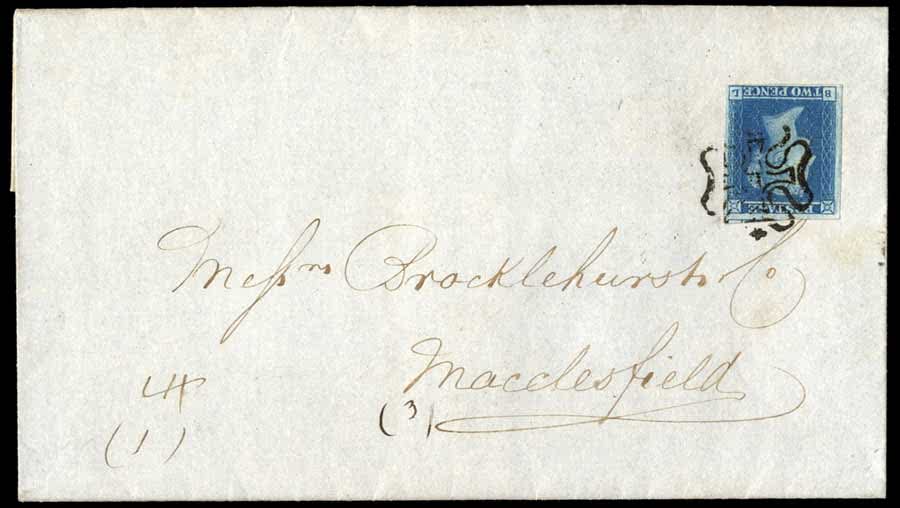 TWO PENCE
B L
POSTAGE
Messrs Brocklehurst Co
Macclesfield
(3)
(1)